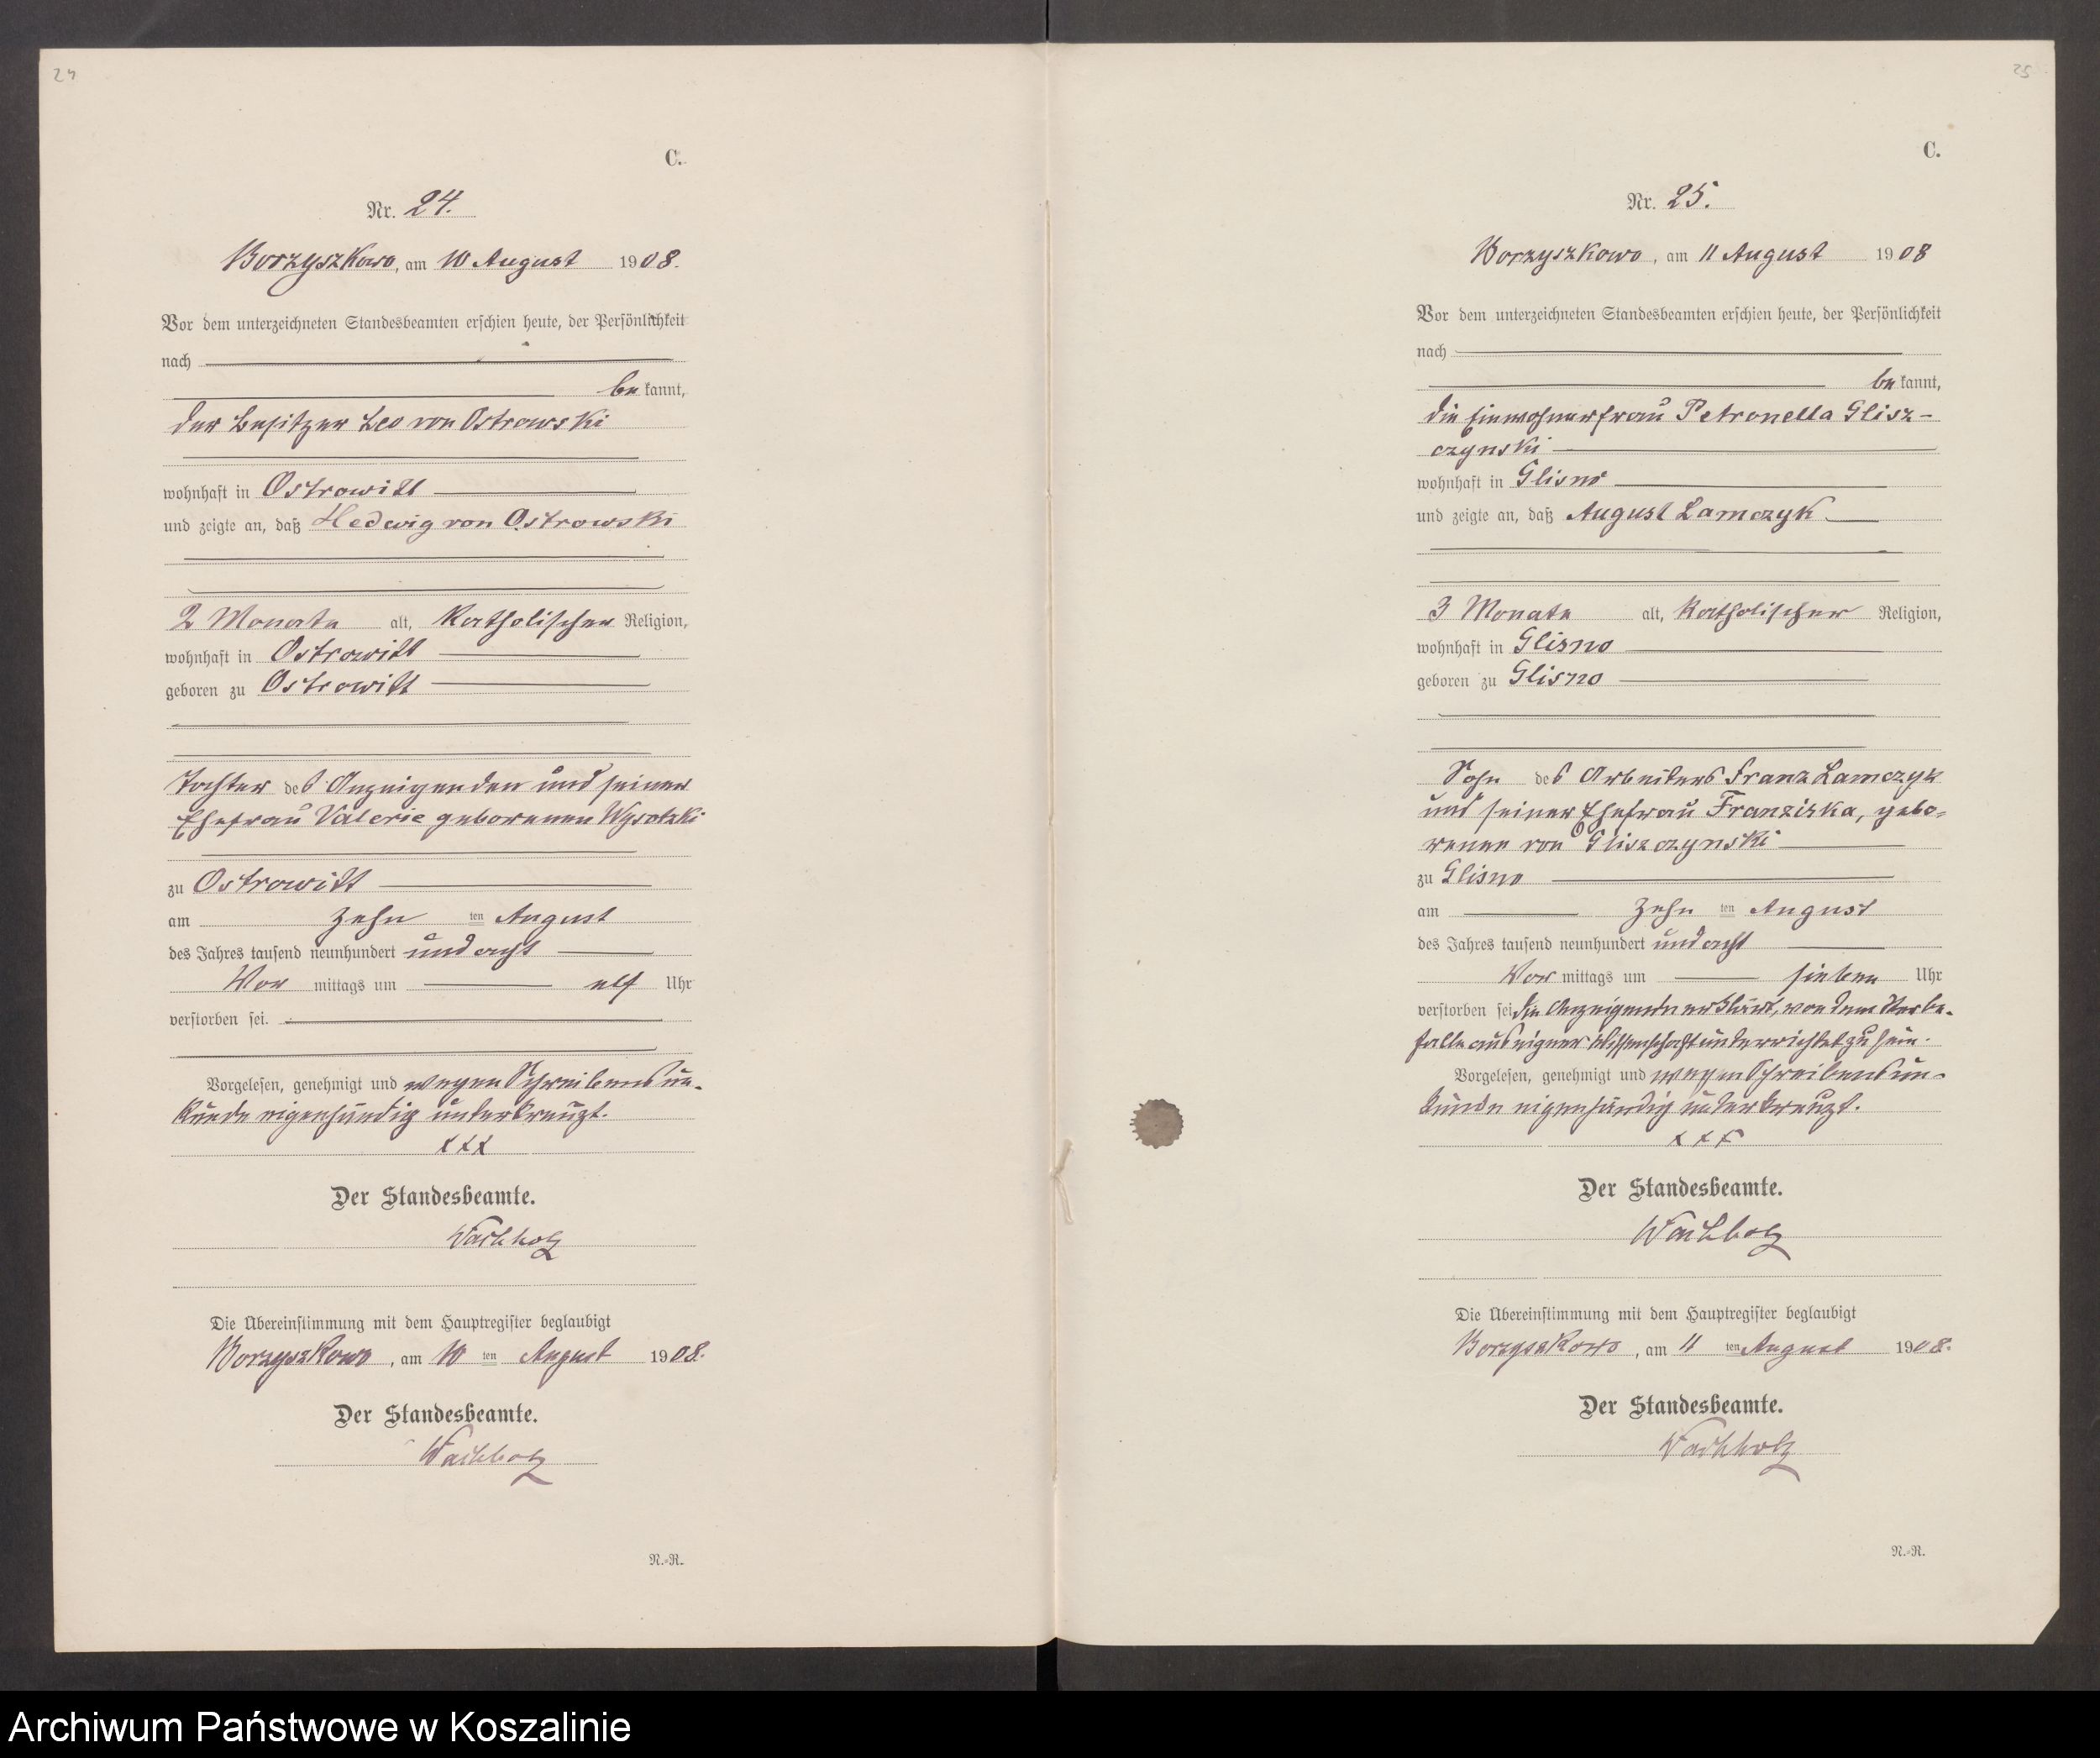 24
C.
Nr. 24.
Borzyszkowo, am 10 August 1908.
Vor dem unterzeichneten Standesbeamten erschien heute, der Persönlichkeit
nach
be kannt,
der Besitzer Leo von Ostrowski
wohnhaft in Ostrowitt
und zeigte an, daß Hedwig von Ostrowski
2 Monate alt, katholischer Religion,
wohnhaft in Ostrowitt
geboren zu Ostrowitt
Tochter des Anzeigenden und seiner
Ehefrau Valerie geborenen Wysotzki
zu Ostrowitt
am zehn ten August
des Jahres tausend neunhundert und acht
Vor mittags um elf Uhr
verstorben sei.
Vorgelesen, genehmigt und wegen Schreibensun-
kunde eigenhändig unterkreuzt.
xxx
Der Standesbeamte.
Wachholz
Die Übereinstimmung mit dem Hauptregister beglaubigt
Borzyszkowo, am 10 ten August 1908.
Der Standesbeamte.
Wachholz
N.-R.
25
C.
Nr. 25.
Borzyszkowo, am 11 August 1908
Vor dem unterzeichneten Standesbeamten erschien heute, der Persönlichkeit
nach
be kannt,
die Einwohnerfrau Petronella Glisz-
czynski
wohnhaft in Glisno
und zeigte an, daß August Lamczyk
3 Monate alt, katholischer Religion,
wohnhaft in Glisno
geboren zu Glisno
Sohn des Arbeiters Franz Lamczyk
und seiner Ehefrau Franziska, gebo-
renen von Gliszczynski
zu Glisno
am zehn ten August
des Jahres tausend neunhundert und acht
Vor mittags um sieben Uhr
verstorben sei die Anzeigende erklärt, von dem Sterbe-
falle aus eigner Wissenschaft unterrichtet zu sein.
Vorgelesen, genehmigt und wegen Schreibensun-
kunde eigenhändig unterkreuzt.
xxx
Der Standesbeamte.
Wachholz
Die Übereinstimmung mit dem Hauptregister beglaubigt
Borzyszkowo, am 11 ten August 1908.
Der Standesbeamte.
Wachholz
N.-R.
Archiwum Państwowe w Koszalinie